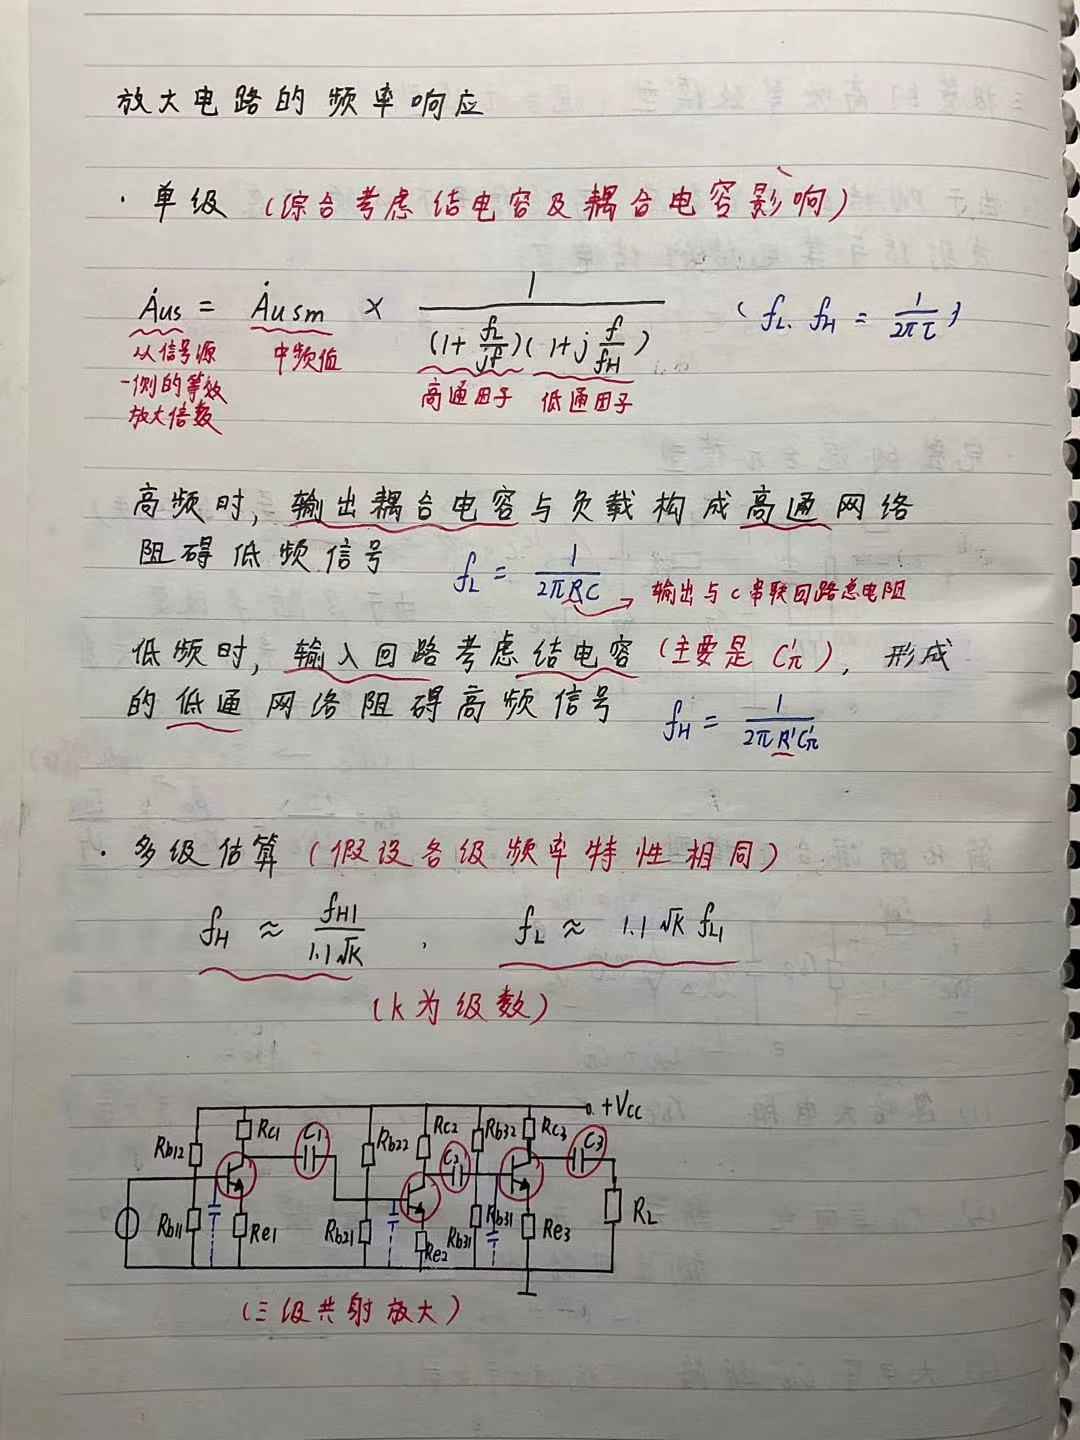 放大电路的频率响应
· 单级 (综合考虑结电容及耦合电容影响)
Ȧus = Ȧusm × 1/((1+fL/jf)(1+j f/fH)) (fL、fH = 1/2πτ)
从信号源一侧的等效放大倍数 中频值 高通因子 低通因子
高频时, 输出耦合电容与负载构成高通网络
阻碍低频信号 fL = 1/2πRC → 输出与C串联回路总电阻
低频时, 输入回路考虑结电容 (主要是 C'π), 形成
的低通网络阻碍高频信号 fH = 1/2πR'C'π
· 多级估算 (假设各级频率特性相同)
fH ≈ fH1/1.1√K , fL ≈ 1.1√K fL1
(K为级数)
+Vcc
Rb12 Rc1 C1 Rb22 Rc2 C2 Rb32 Rc3 C3
Rb11 Re1 Rb21 Re2 Rb31 Rb31 Re3 RL
(三级共射放大)